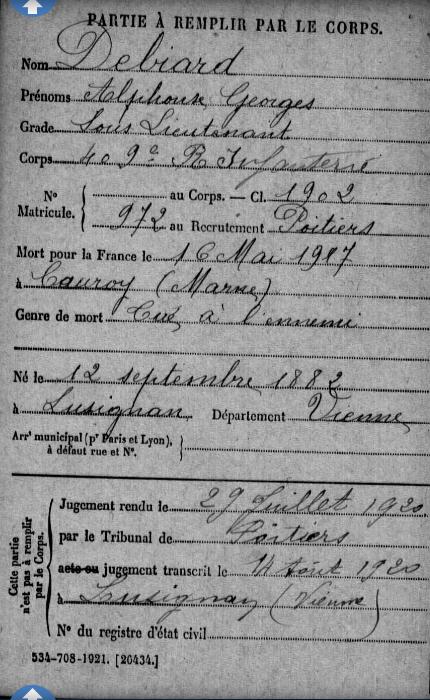 PARTIE À REMPLIR PAR LE CORPS.
Nom Debiard
Prénoms Alphonse Georges
Grade Sous Lieutenant
Corps 409e R Infanterie
N° Matricule. { au Corps. — Cl. 1902
972 au Recrutement Poitiers
Mort pour la France le 16 Mai 1917
à Cauroy (Marne)
Genre de mort Tué à l'ennemi
Né le 12 septembre 1882
à Lusignan Département Vienne
Arrt municipal (pr Paris et Lyon), à défaut rue et N°. }
Cette partie n'est pas à remplir par le Corps.
Jugement rendu le 29 Juillet 1920
par le Tribunal de Poitiers
acte ou jugement transcrit le 14 Août 1920
à Lusignan (Vienne)
N° du registre d'état civil
534-708-1921. [26434.]